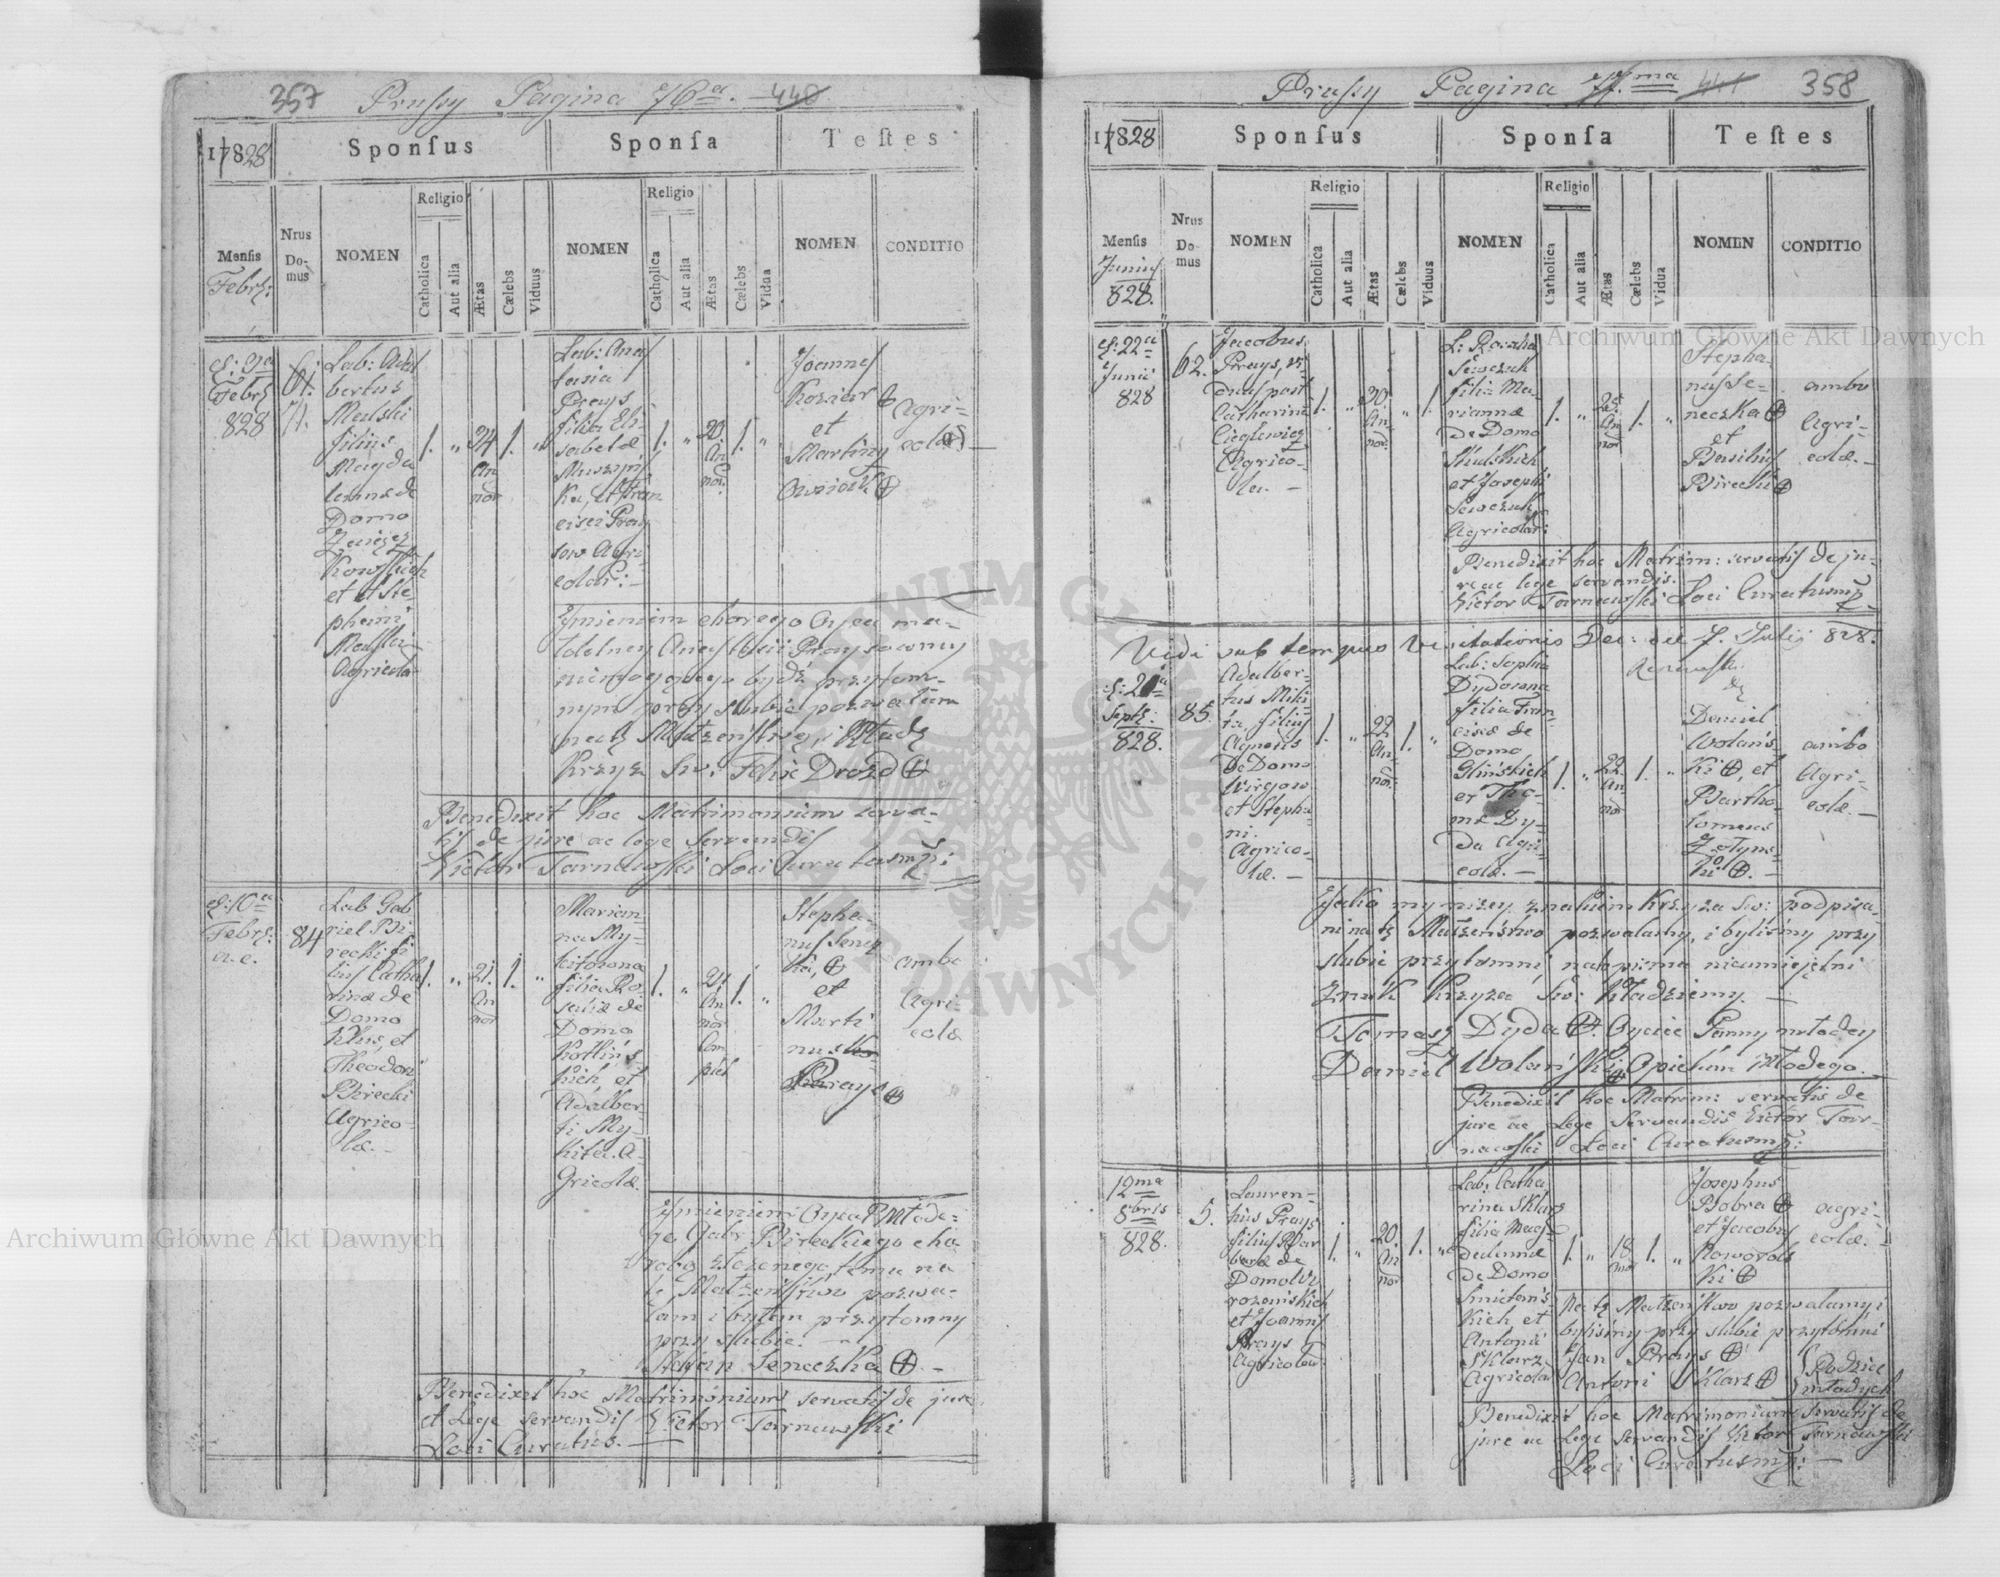 357 Prusy Pagina 76a. 440
17828
Sponſus
Sponſa
Teſtes
Menſis
Febrz:
Nrus
Do-
mus
NOMEN
Religio
Catholica
Aut alia
Ætas
Cælebs
Viduus
NOMEN
Religio
Catholica
Aut alia
Ætas
Cælebs
Vidua
NOMEN
CONDITIO
Febrz
828
Lab: Adal
bertus
filius
Magda
lenæ de
Domo
et Ste
phani
Agricola
1.
„
24
An
nor
1.
„
Lab: Anas
tasia
Prays
filia Eli-
sabetæ
ka, et Fran
cisci Pray
sow Agri-
colar: –
1.
„
20.
An
nor.
1.
„
Joannes
Koziar
et
Martinus
Agri-
colæ
Jmieniem chorego Oyca na-
niemogącego bydź przytom-
nym przy slubie pozwalam
na tę Małżenstwo, i Kładę
Krzyż Sw: Felix Drozd
Benedixit hoc Matrimonium serva-
tis de jure ac lege servandis
Victor Tarnawski Loci Curatus mp:
d: 10a
Febrz:
a. c.
84
Lab Gab
riel Bi
recki fi-
lius Catha
rinæ de
Domo
Klus, et
Theodori
Birecki
Agrico-
læ. –
1.
„
21.
An
nor
1.
„
Marian-
na My-
kitowna
filia Ro
saliæ de
Domo
Kotlins-
kich, et
Adalber
ti My-
kita. A-
gricolæ.
1.
„
21.
An
nor
Com
plet
1.
„
Stepha-
nus Senecz
ka,
et
Marti
nus
Prays
ambo
Agri-
colæ
Jmieniem Oyca P Młode-
go Gabr Bireckiego cho
robą złożonego, temu na
te Małżenstwo pozwa-
lam i bylem przytomny
przy slubie. –
Stefan Seneczka –
Benedixit hoc Matrimonium servatis de jure
et Lege servandis Victor Tarnawski
Loci Curatus. –
Prusy Pagina 77.ma 441 358
17828
Sponſus
Sponſa
Teſtes
Menſis
Junius
828.
Nrus
Do-
mus
NOMEN
Religio
Catholica
Aut alia
Ætas
Cælebs
Viduus
NOMEN
Religio
Catholica
Aut alia
Ætas
Cælebs
Vidua
NOMEN
CONDITIO
d: 22a
Junii
828
62.
Jacobus
Prays, vi-
duus post
Catharina
Agrico-
la. –
1.
„
30.
An
nor.
„
1.
L: Rosalia
Sewczuk
filia Ma-
riannæ
de Domo
et Josephi
Sewczuk
Agricolar:
1.
„
25.
An
nor
1.
„
Stepha-
nus Se-
neczka
Et
Basilius
Birecki
ambo
Agri-
colæ. –
Benedixit hoc Matrim: servatis de ju-
re ac lege servandis.
Victor Tarnawski Loci Curatus mp
Vidi sub tempus Visitationis Dec: die 7. Julij 828.
d: 21a
Septz:
828.
85.
Adalber-
tus Miki
ta, filius
Agnetis
De Domo
et Stepha-
ni.
Agrico-
læ. –
1.
„
22
An-
nor.
1.
„
Lab: Sophia
Dydowna
filia Fran-
ciscæ de
Domo
Glinskich
et Tho-
mæ Dy-
da Agri-
colæ. –
1.
„
22.
An
nor
1.
„
Daniel
Wolans-
ki, et
Bartho-
lomeus
Zolyns-
ki. –
ambo
Agri-
colæ. –
Jako my nizey znakiem krzyza Sw: podpisa-
ni na tę Małżeństwo pozwalamy, i byliśmy przy
slubie przytomni na to pismo nieumiejętni
Znak Krzyza Sw: Kładziemy. –
Tomasz Dyda. Oyciec Panny młodey
Daniel Wolański Opiekun Młodego. –
Benedixit hoc Matrim: servatis de
jure ac Lege Servandis Victor Tar-
nawski Loci Curatus mp:
12ma
8bris
828.
5.
Lauren-
tius Prays
filius Bar
baræ de
Domo
et Joannis
Prays
Agricolar:
1.
„
20.
An
nor
1.
„
Lab: Catha
rina Sklarz
filia Mag-
dalennæ
de Domo
kich et
Antonii
Sklarz
Agricolar
1.
„
18
1.
„
Josephus
Bobra
et Jacobus
Noworols
ki
agri-
colæ. –
Na tę Małżeństwo pozwalamy i
byliśmy przy slubie przytomni
Jan Prays
Antoni Sklarz
Rodzice
młodych
Benedixit hoc Matrimonium Servatis de
jure ac Lege servandis Victor Tarnawski
Loci Curatus mp: –
Archiwum Główne Akt Dawnych
Archiwum Główne Akt Dawnych
ARCHIWUM GŁÓWNE AKT DAWNYCH